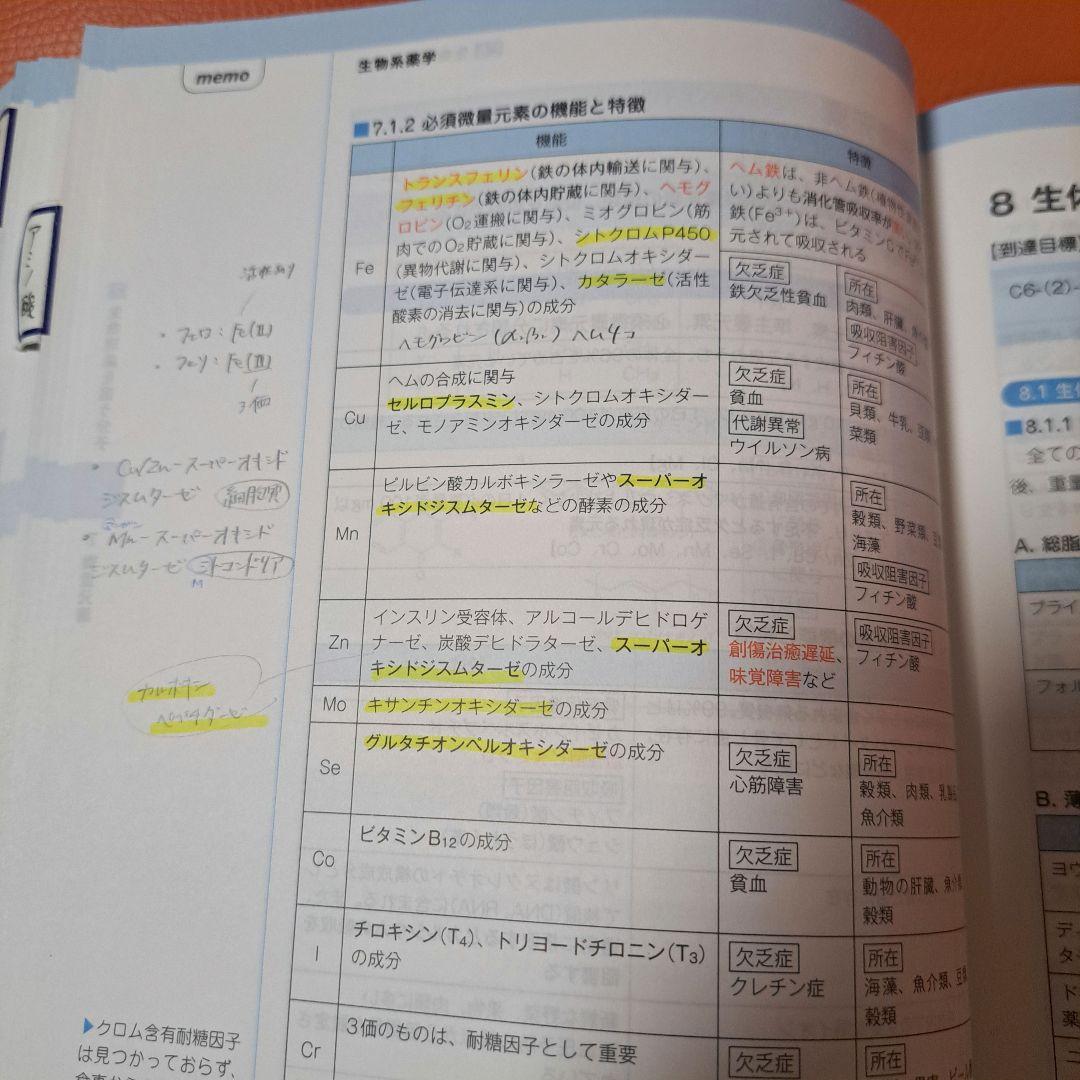 memo
生物系薬学
■7.1.2 必須微量元素の機能と特徴
機能
特徴
Fe
トランスフェリン(鉄の体内輸送に関与)、
フェリチン(鉄の体内貯蔵に関与)、ヘモグ
ロビン(O₂運搬に関与)、ミオグロビン(筋
肉でのO₂貯蔵に関与)、シトクロムP450
(異物代謝に関与)、シトクロムオキシダー
ゼ(電子伝達系に関与)、カタラーゼ(活性
酸素の消去に関与)の成分
ヘモグロビン(α.β.) ヘム4コ
ヘム鉄は、非ヘム鉄(植物性
い)よりも消化管吸収率が
鉄(Fe³⁺)は、ビタミンCで
元されて吸収される
欠乏症
鉄欠乏性貧血
所在
肉類、肝臓、
吸収阻害因子
フィチン酸
Cu
ヘムの合成に関与
セルロプラスミン、シトクロムオキシダー
ゼ、モノアミンオキシダーゼの成分
欠乏症
貧血
代謝異常
ウイルソン病
所在
貝類、牛乳、豆
菜類
Mn
ピルビン酸カルボキシラーゼやスーパーオ
キシドジスムターゼなどの酵素の成分
所在
穀類、野菜類、豆
海藻
吸収阻害因子
フィチン酸
Zn
インスリン受容体、アルコールデヒドロゲ
ナーゼ、炭酸デヒドラターゼ、スーパーオ
キシドジスムターゼの成分
欠乏症
創傷治癒遅延、
味覚障害など
吸収阻害因子
フィチン酸
Mo
キサンチンオキシダーゼの成分
Se
グルタチオンペルオキシダーゼの成分
欠乏症
心筋障害
所在
穀類、肉類、乳
魚介類
Co
ビタミンB₁₂の成分
欠乏症
貧血
所在
動物の肝臓、魚介
穀類
I
チロキシン(T₄)、トリヨードチロニン(T₃)
の成分
欠乏症
クレチン症
所在
海藻、魚介類、豆
穀類
Cr
3価のものは、耐糖因子として重要
欠乏症
所在
アミノ酸
活性あり
・フェロ:Fe(Ⅱ)
・フェリ:Fe(Ⅲ)
3価
・Cu/Zn-スーパーオキシド
ジスムターゼ 細胞質
・Mn-スーパーオキシド
ジスムターゼ ミトコンドリア
M
カルボキシ
ペプチダーゼ
▶クロム含有耐糖因子
は見つかっておらず、
8 生体
[到達目標
C6-(2)-
8.1 生
■8.1.1
全ての
後、重量
A. 総脂
プライ
フォル
B. 薄
ヨウ
デ
ター
ド
薬
ニ